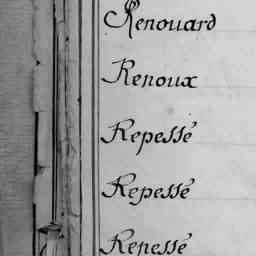 Renouard
Renoux
Repessé
Repessé
Repessé